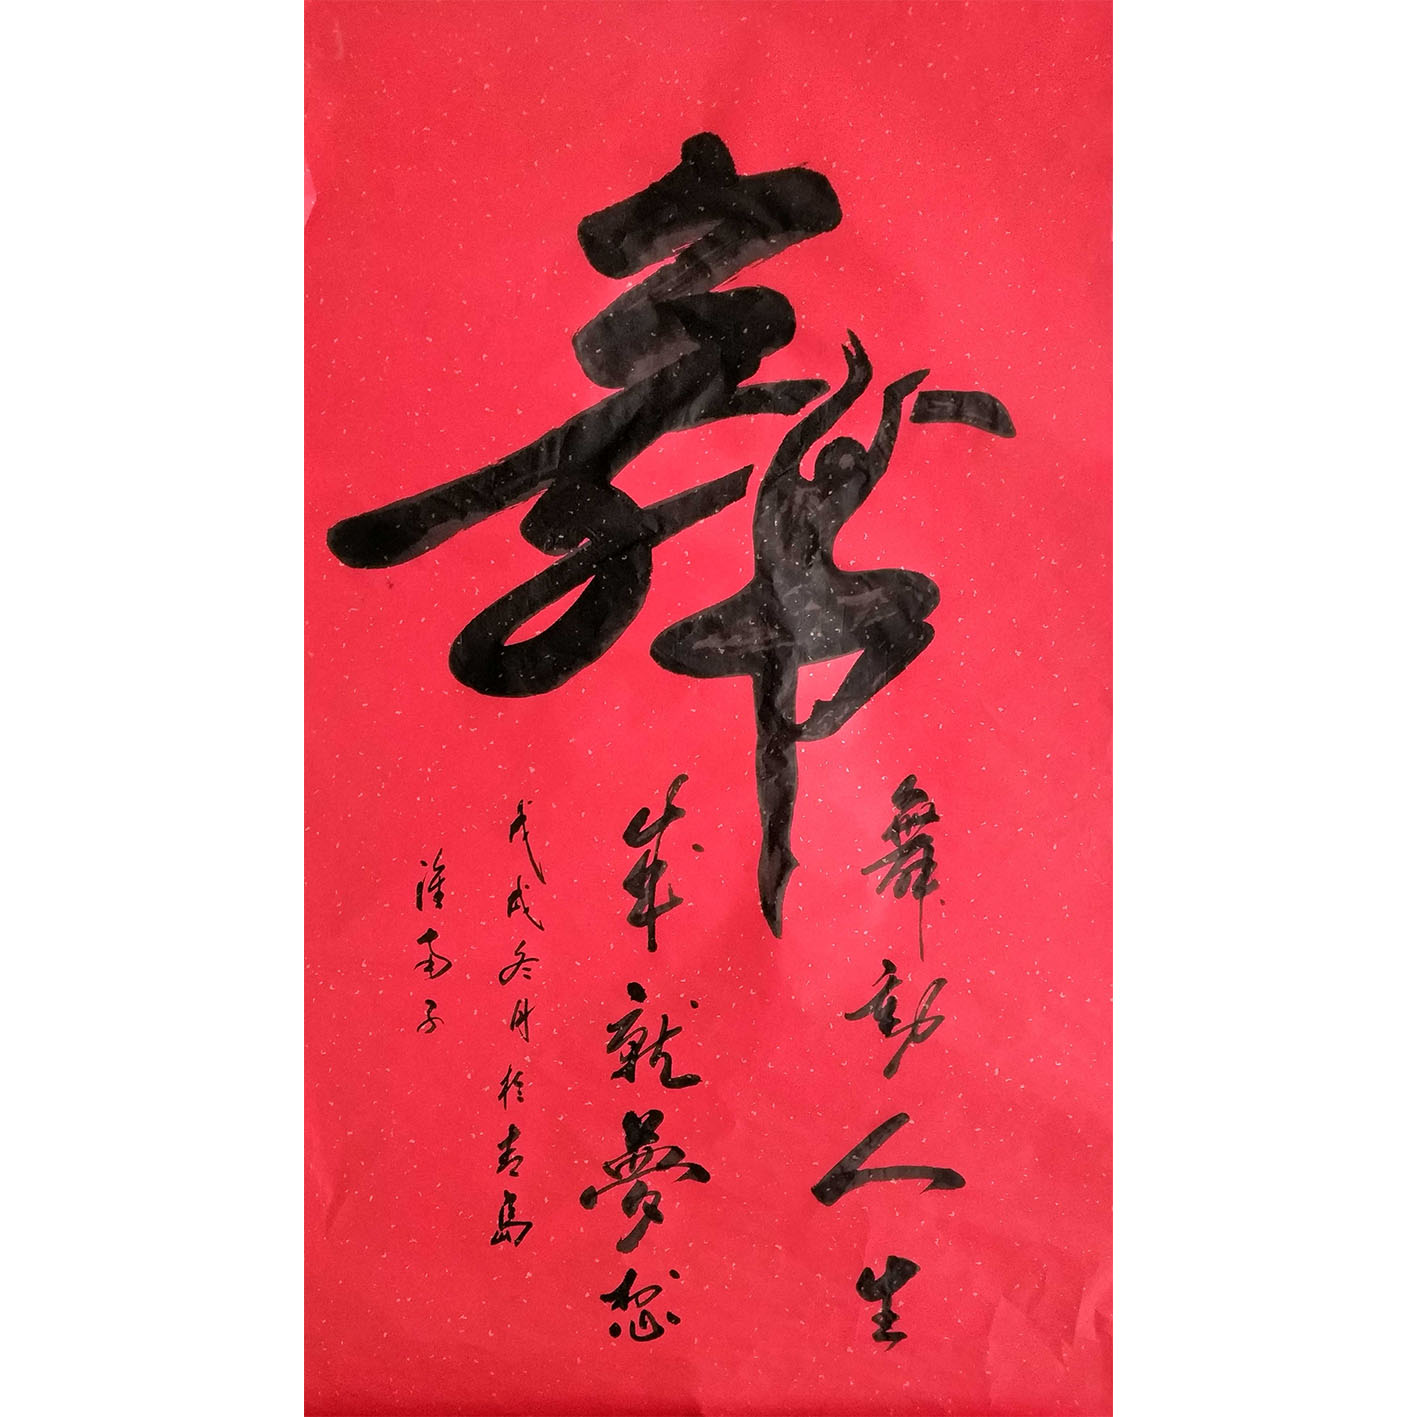 舞
舞動人生
成就夢想
戊戌冬月於青島
淮南子